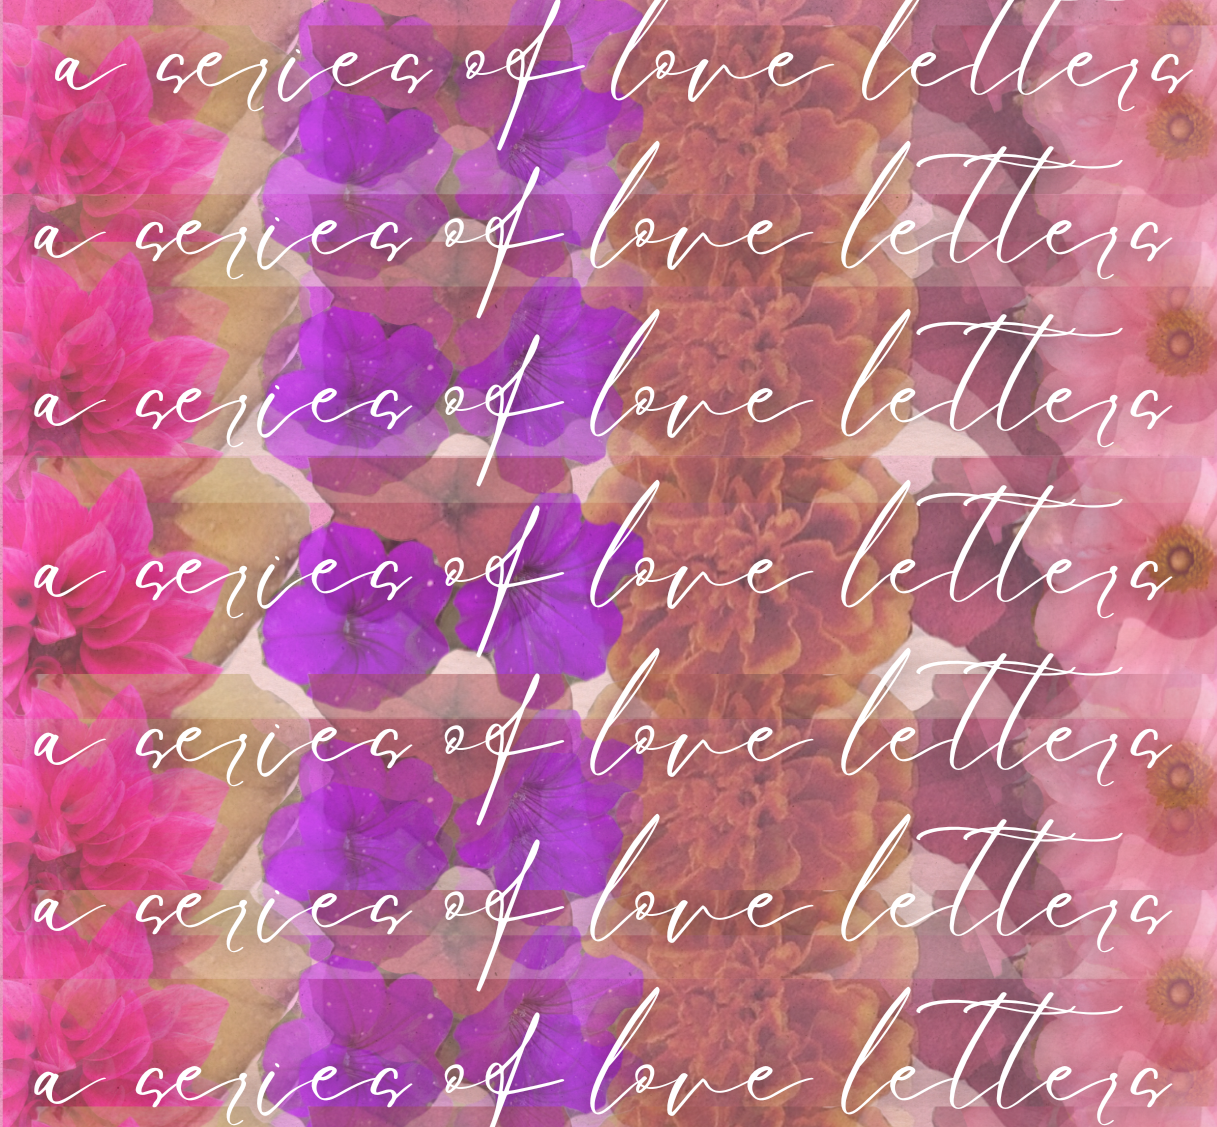 a series of love letters
a series of love letters
a series of love letters
a series of love letters
a series of love letters
a series of love letters
a series of love letters